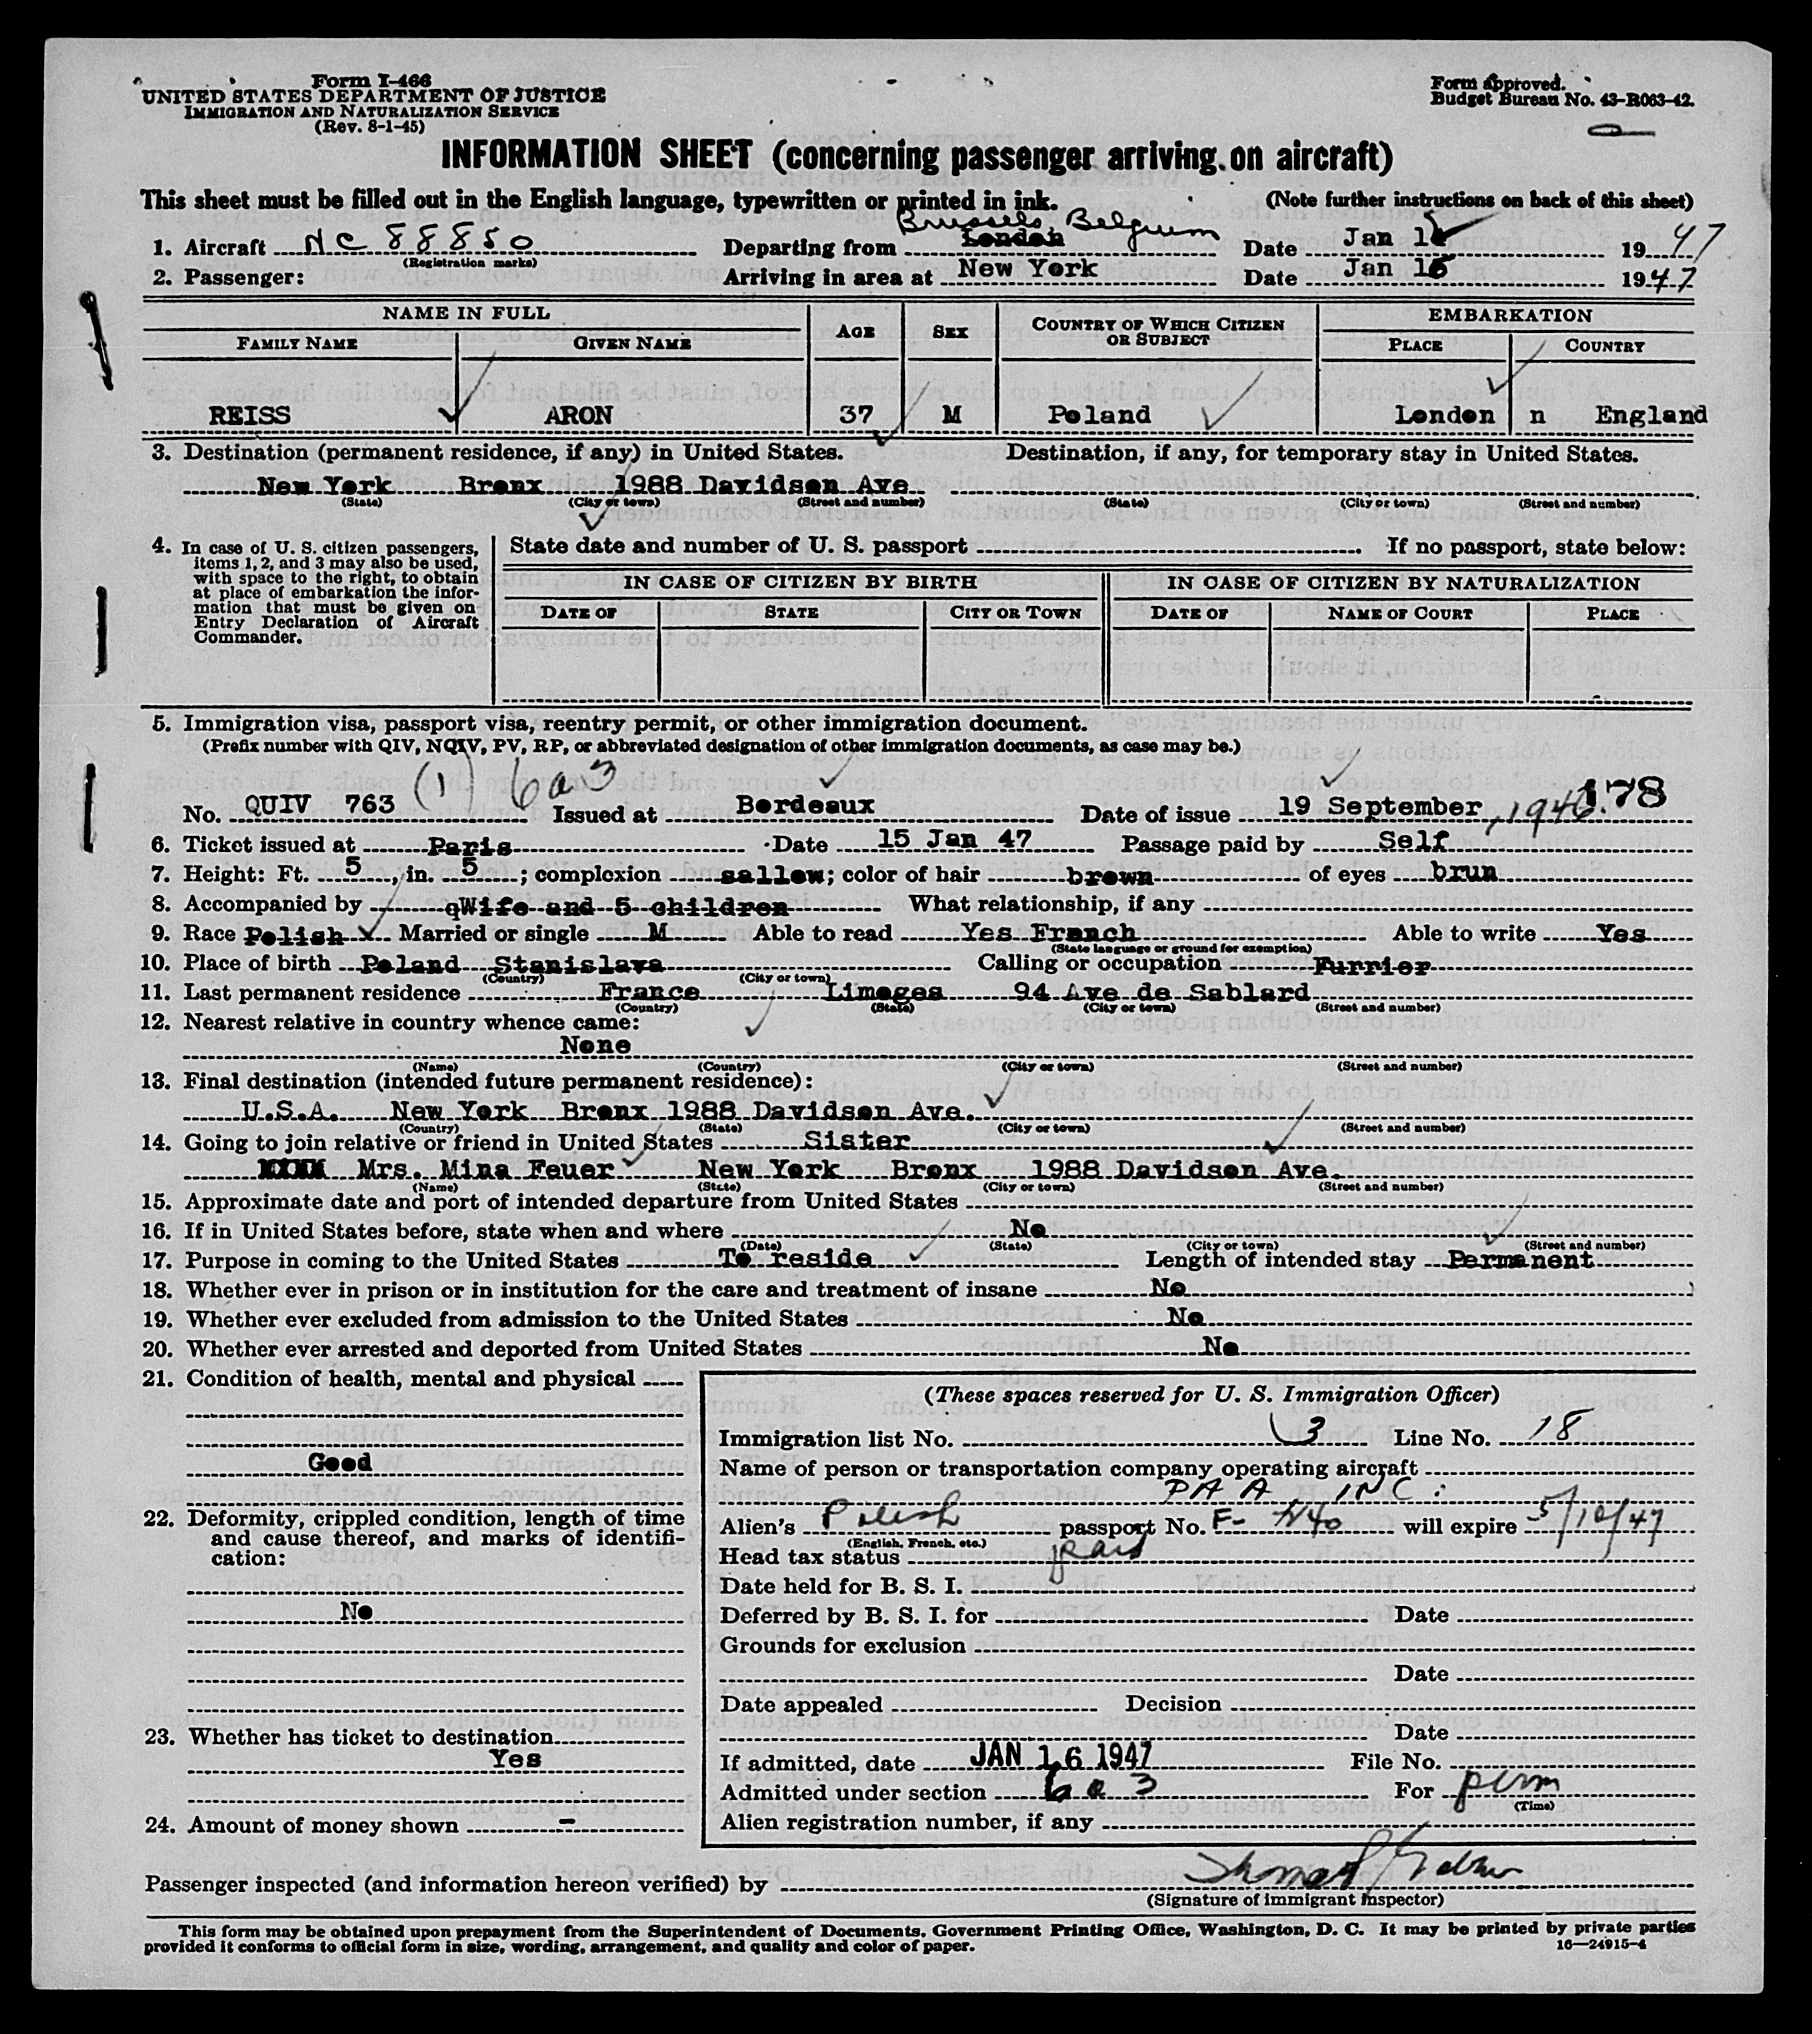 Form I-466
UNITED STATES DEPARTMENT OF JUSTICE
IMMIGRATION AND NATURALIZATION SERVICE
(Rev. 8-1-45)
Form approved.
Budget Bureau No. 43-R063-42.
INFORMATION SHEET (concerning passenger arriving on aircraft)
This sheet must be filled out in the English language, typewritten or printed in ink. (Note further instructions on back of this sheet)
Brussels, Belgium
1. Aircraft NC 88850 Departing from London Date Jan 1 1947
(Registration marks)
2. Passenger: Arriving in area at New York Date Jan 16 1947
NAME IN FULL AGE SEX COUNTRY OF WHICH CITIZEN OR SUBJECT EMBARKATION
FAMILY NAME GIVEN NAME PLACE COUNTRY
REISS ARON 37 M Poland London n England
3. Destination (permanent residence, if any) in United States. Destination, if any, for temporary stay in United States.
New York Bronx 1988 Davidson Ave
(State) (City or town) (Street and number) (State) (City or town) (Street and number)
4. In case of U. S. citizen passengers, items 1, 2, and 3 may also be used, with space to the right, to obtain at place of embarkation the information that must be given on Entry Declaration of Aircraft Commander.
State date and number of U. S. passport If no passport, state below:
IN CASE OF CITIZEN BY BIRTH IN CASE OF CITIZEN BY NATURALIZATION
DATE OF STATE CITY OR TOWN DATE OF NAME OF COURT PLACE
5. Immigration visa, passport visa, reentry permit, or other immigration document.
(Prefix number with QIV, NQIV, PV, RP, or abbreviated designation of other immigration documents, as case may be.)
No. QUIV 763 (1) 6a3 Issued at Bordeaux Date of issue 19 September, 1946. 178
6. Ticket issued at Paris Date 15 Jan 47 Passage paid by Self
7. Height: Ft. 5, in. 5; complexion sallow; color of hair brown of eyes brun
8. Accompanied by qWife and 5 children What relationship, if any
9. Race Polish Married or single M Able to read Yes Franch Able to write Yes
(State language or ground for exemption)
10. Place of birth Poland Stanislava Calling or occupation Furrier
(Country) (City or town)
11. Last permanent residence France Limoges 94 Ave de Sablard
(Country) (State) (City or town) (Street and number)
12. Nearest relative in country whence came:
None
(Name) (Country) (City or town) (Street and number)
13. Final destination (intended future permanent residence):
U.S.A. New York Bronx 1988 Davidson Ave.
(Country) (State) (City or town) (Street and number)
14. Going to join relative or friend in United States Sister
Mrs. Mina Feuer New York Bronx 1988 Davidson Ave.
(Name) (State) (City or town) (Street and number)
15. Approximate date and port of intended departure from United States
16. If in United States before, state when and where No
(Date) (State) (City or town) (Street and number)
17. Purpose in coming to the United States To reside Length of intended stay Permanent
18. Whether ever in prison or in institution for the care and treatment of insane No
19. Whether ever excluded from admission to the United States No
20. Whether ever arrested and deported from United States No
21. Condition of health, mental and physical
Good
22. Deformity, crippled condition, length of time and cause thereof, and marks of identification:
No
23. Whether has ticket to destination
Yes
24. Amount of money shown -
(These spaces reserved for U. S. Immigration Officer)
Immigration list No. 3 Line No. 18
Name of person or transportation company operating aircraft
PAA INC.
Alien's Polish passport No. F- will expire 5/10/47
(English, French, etc.)
Head tax status paid
Date held for B. S. I.
Deferred by B. S. I. for Date
Grounds for exclusion
Date
Date appealed Decision
Date
If admitted, date JAN 16 1947 File No.
Admitted under section 6a3 For perm
(Time)
Alien registration number, if any
Passenger inspected (and information hereon verified) by
(Signature of immigrant inspector)
This form may be obtained upon prepayment from the Superintendent of Documents, Government Printing Office, Washington, D. C. It may be printed by private parties
provided it conforms to official form in size, wording, arrangement, and quality and color of paper. 16—24915-4